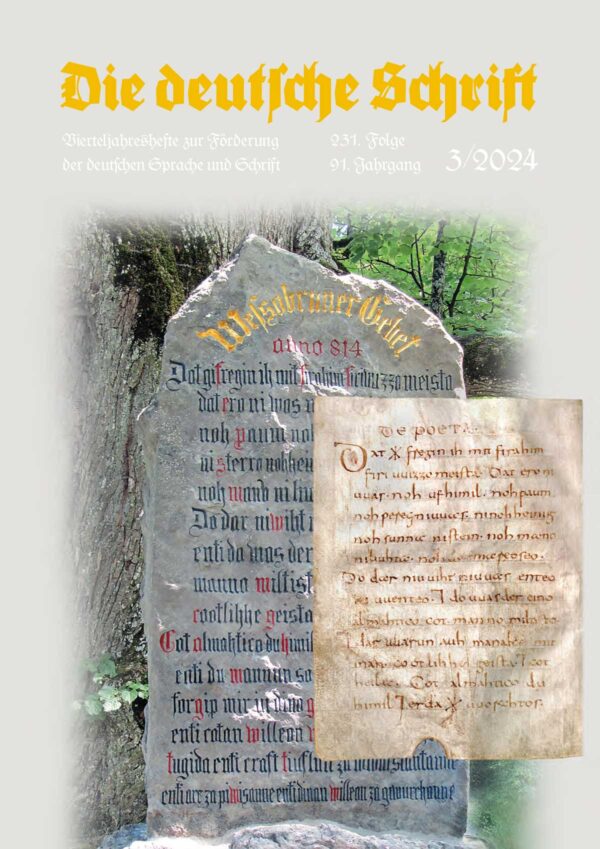 Die deutſche Schrift
Vierteljahreshefte zur Förderung
der deutſchen Sprache und Schrift
231. Folge
91. Jahrgang
3/2024
Weſſobrunner Gebet
anno 814
Dat gifregin ih mit firahim firiuuizzo meista
dat ero ni was
noh paum noh
ni sterro nohhein
noh mano ni
Do dar niwiht
enti do was der
manno miltist
cootlihhe geista
Cot almahtico du himil
enti du mannun so
forgip mir in dino
enti cotan willeon
tugida enti craft tiuflun za widarstantanne
enti arc za piwisanne enti dinan willeon za gawurchanne
DE POETA
Dat fregin ih mit firahim
firi uuizzo meista Dat ero ni
uuas noh ufhimil noh paum
noh pereg ni uuas ninohheinig
noh sunna ni stein noh mano
Do dar niuuiht ni uuas enteo
ni uuenteo do uuas der eino
almahtico cot manno milisto
dar uuarun auh manake mit
man cootlihhe geista cot
heilac Cot almahtico du
himil erda uuorahtos